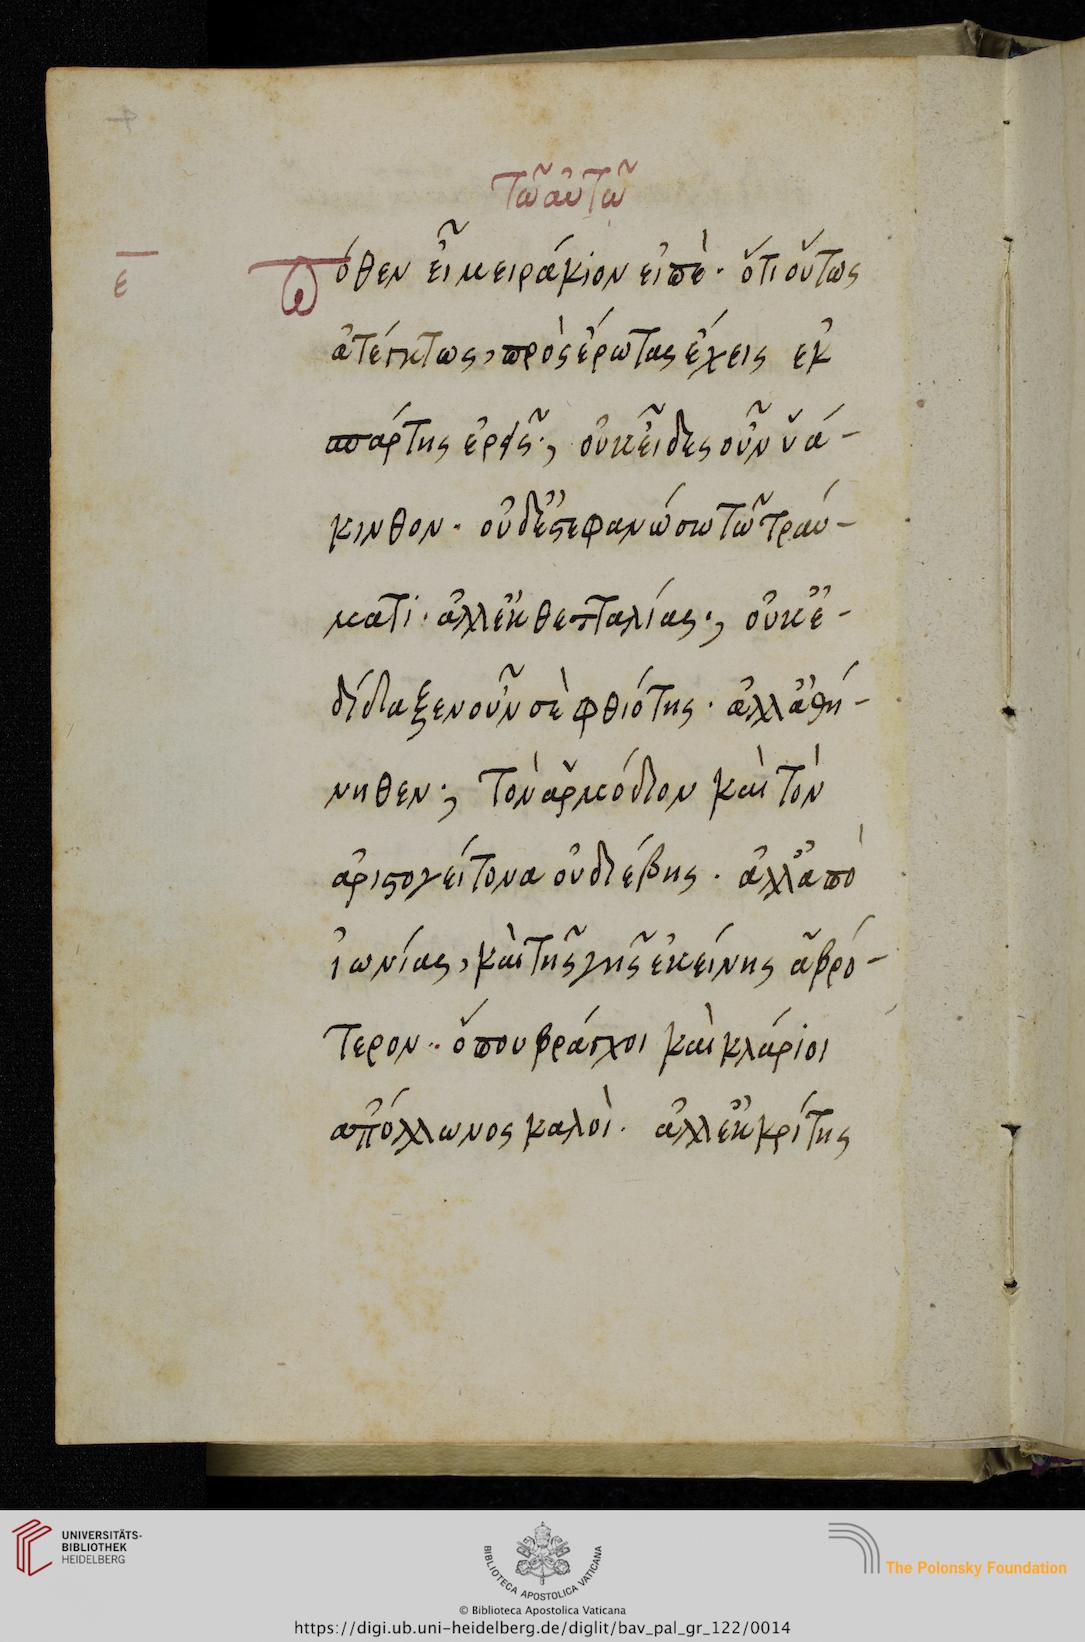 τῶ αὐτῶ
ε
Πόθεν εἶ μειράκιον εἰπὲ· ὅτι οὕτως
ἀτέγκτως, πρὸς ἔρωτας ἔχεις ἐκ
σπάρτης ἐρεῖς·, οὐκ εἶδες οὖν ὑά-
κινθον· οὐδ' ἐστεφανώσω τῶ τραύ-
ματι· ἀλλ' ἐκ θετταλίας·, οὐκ ἐ-
δίδαξεν οὖν σὲ φθιότης· ἀλλ' ἀθή-
νηθεν·, τὸν ἁρμόδιον καὶ τὸν
ἀριστογείτονα οὐ διέβης· ἀλλ' ἀπὸ
ἰωνίας, καὶ τῆς γῆς ἐκείνης ἁβρό-
τερον·· ὅπου βράγχοι καὶ κλάριοι
ἀπόλλωνος καλοὶ· ἀλλ' ἐκ κρίτης
UNIVERSITÄTS-
BIBLIOTHEK
HEIDELBERG
BIBLIOTECA APOSTOLICA VATICANA
The Polonsky Foundation
© Biblioteca Apostolica Vaticana
https://digi.ub.uni-heidelberg.de/diglit/bav_pal_gr_122/0014